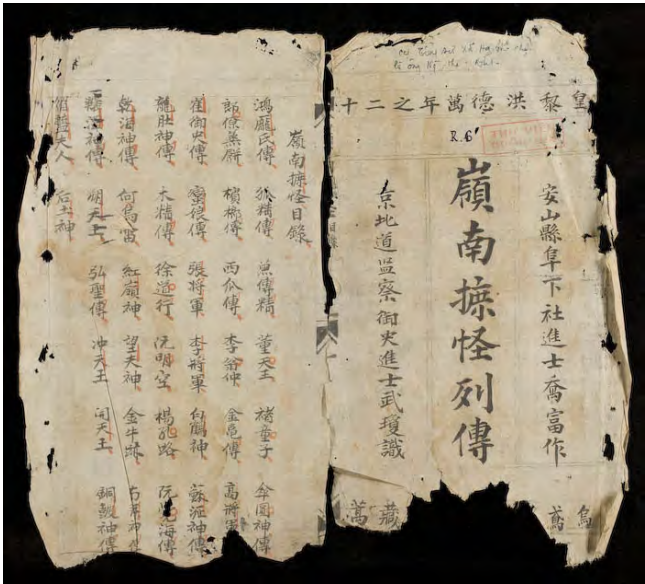 皇黎洪德萬年之二十
R.6
安山縣阜下社進士喬富作
嶺南摭怪列傳
京北道監察御史進士武瓊識
嶺南摭怪目錄
鴻龐氏傳 狐精傳 魚傳精 董天王 褚童子 傘圓神傳
郎僚蒸餅 檳榔傳 西瓜傳 李翁仲 金龜傳 高將軍
崔御史傳 蠻娘傳 張將軍 李將軍 白鶴神 蘇瀝神傳
龍肚神傳 木精傳 徐道行 阮明空 楊孔路 阮覺海傳
乾海神傳 何烏雷 紅嶺神 望天神 金牛跡
海神傳 朔天王 弘聖傳 冲天王 開天王 銅鼓神傳
夫人 后土神